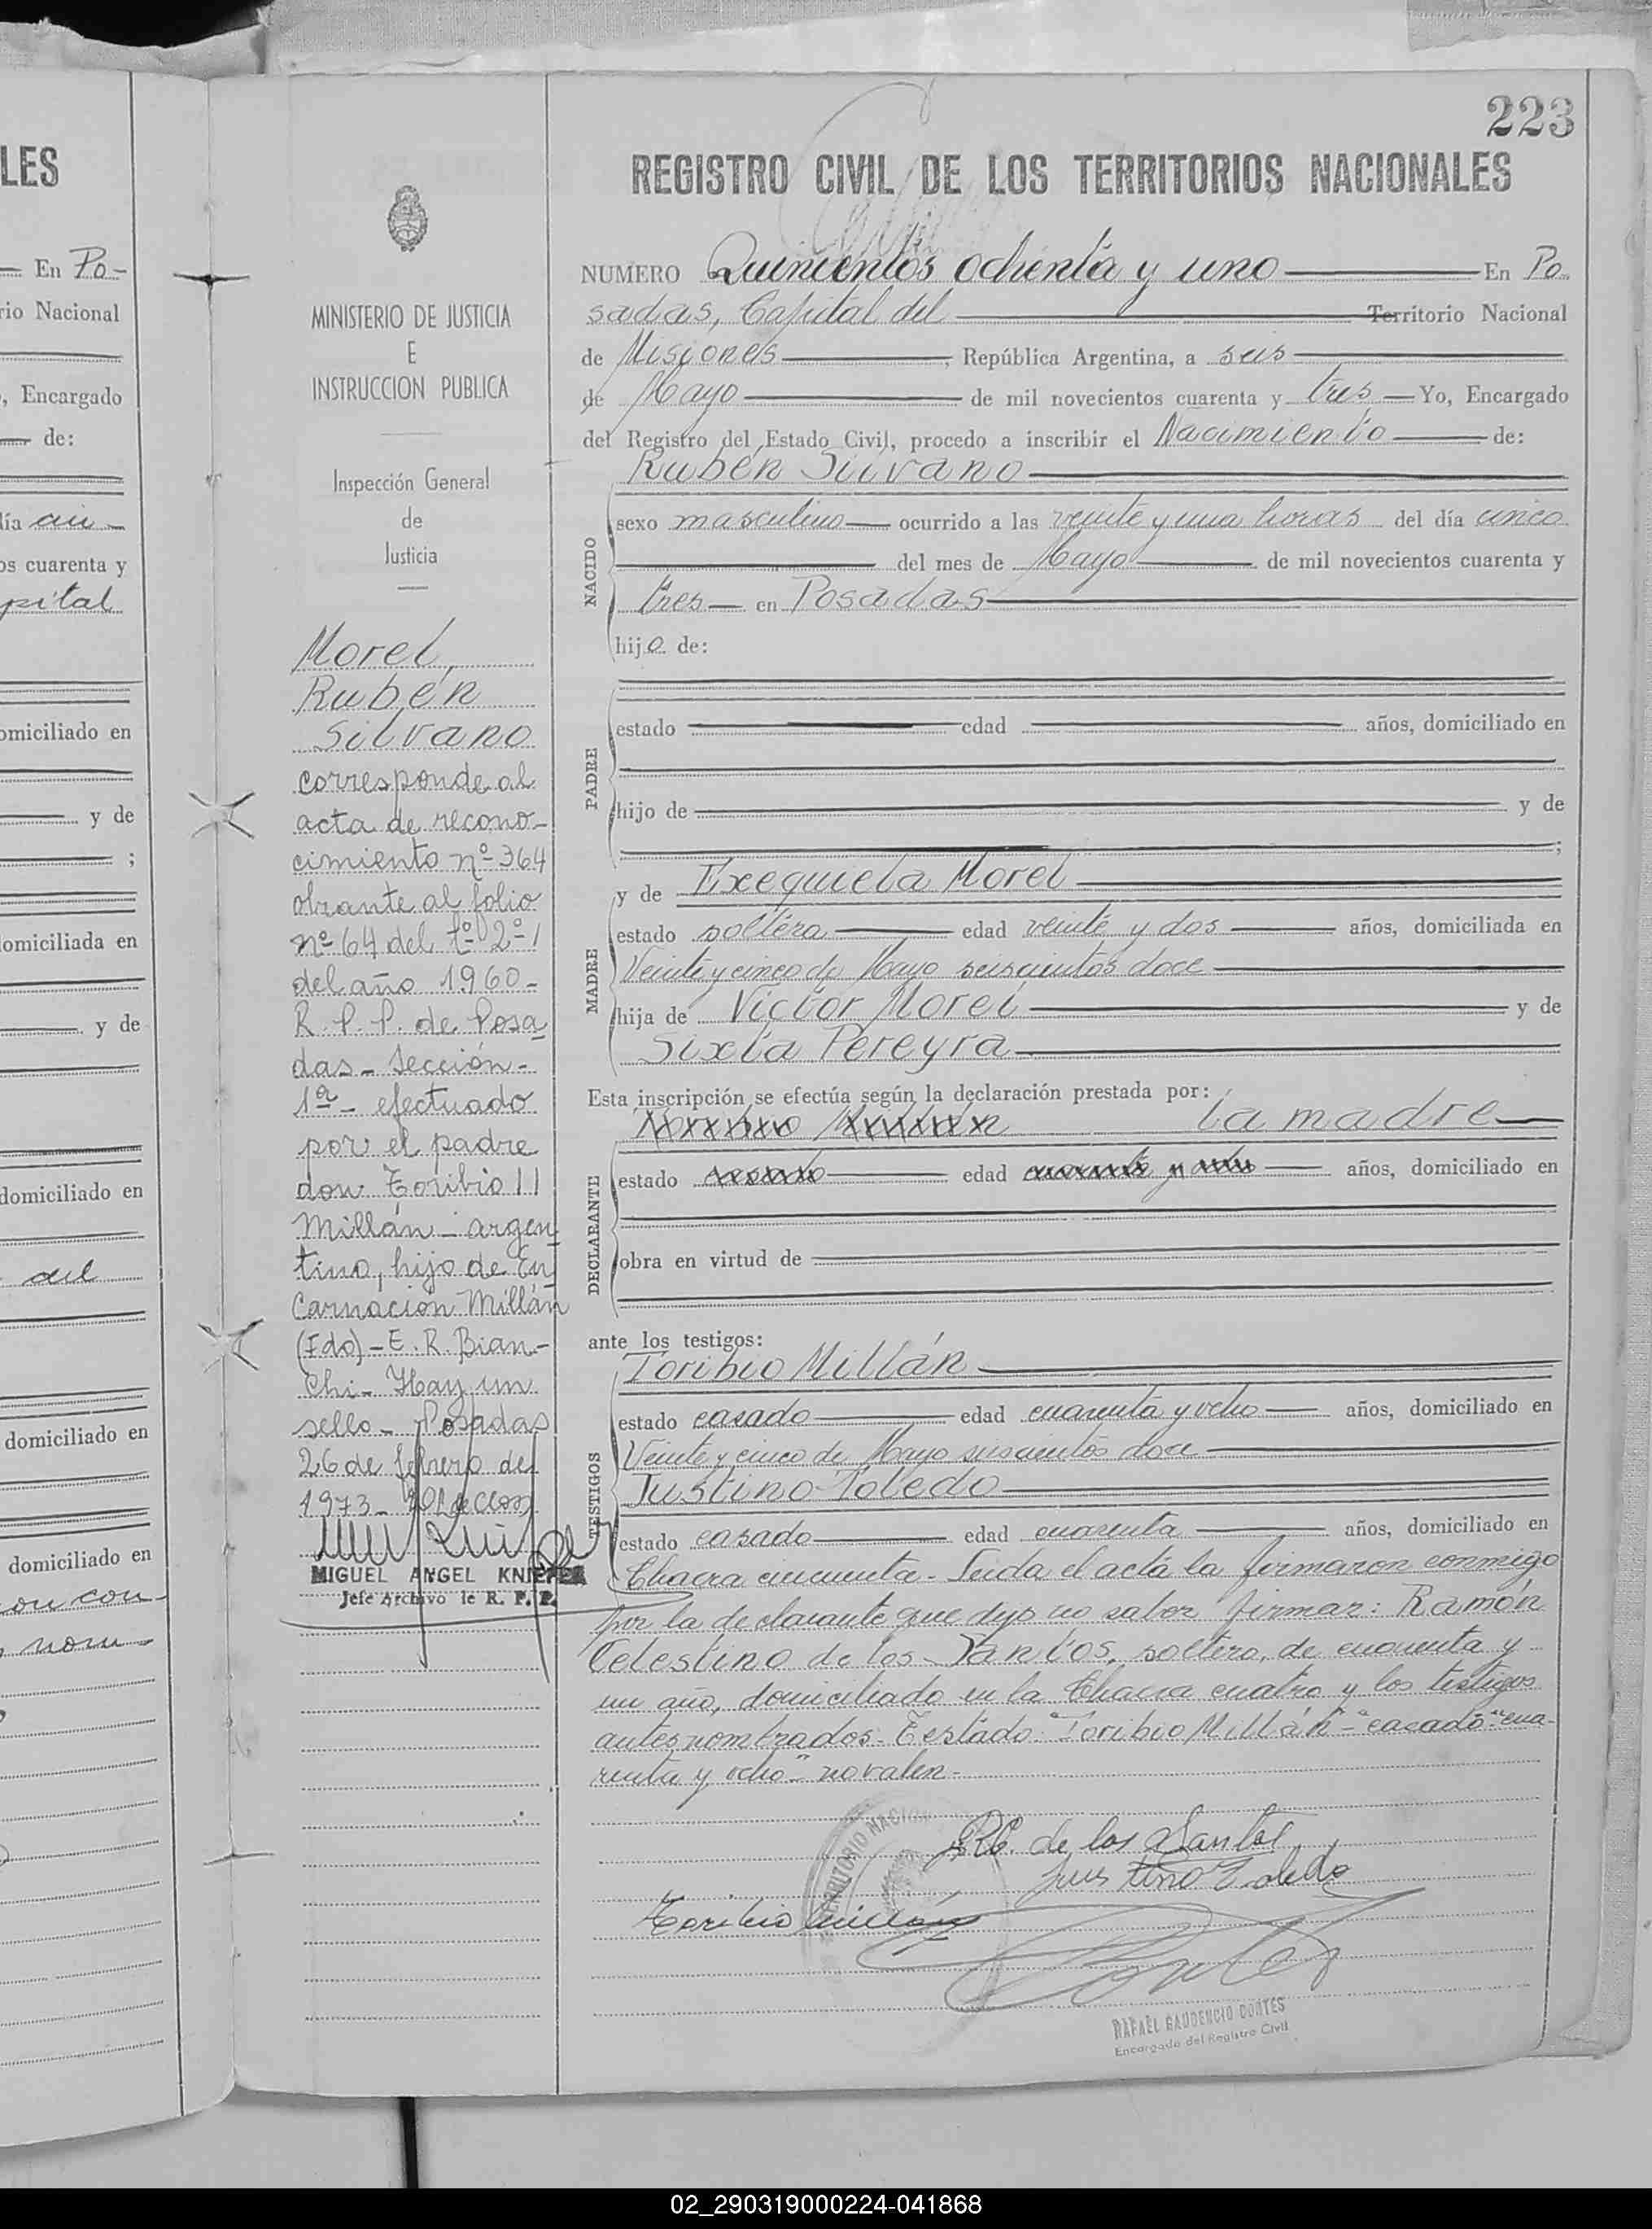 LES
En Po-
rio Nacional
, Encargado
de:
día cin
os cuarenta y
pital
omiciliado en
y de
;
domiciliada en
y de
domiciliado en
domiciliado en
domiciliado en
con
nom
223
REGISTRO CIVIL DE LOS TERRITORIOS NACIONALES
MINISTERIO DE JUSTICIA
E
INSTRUCCION PUBLICA
Inspección General
de
Justicia
Morel,
Rubén
Silvano
corresponde al
acta de recono-
cimiento nº 364
obrante al folio
nº 64 del tº 2º
del año 1960-
R. P. P. de Posa
das - Sección -
1ª - efectuado
por el padre
don Toribio
Millán - argen
tino, hijo de En
carnacion Millán
(Fdo) - E. R. Bian-
chi - Hay un
sello - Posadas
26 de febrero de
1973 -
MIGUEL ANGEL KNIEPER
Jefe Archivo de R. P. P.
NUMERO Quinientos ochenta y uno En Po
sadas, Capital del Territorio Nacional
de Misiones, República Argentina, a seis
de Mayo de mil novecientos cuarenta y tres Yo, Encargado
del Registro del Estado Civil, procedo a inscribir el Nacimiento de:
Rubén Silvano
NACIDO
sexo masculino ocurrido a las veinte y una horas del día cinco
del mes de Mayo de mil novecientos cuarenta y
tres en Posadas
hijo de:
PADRE
estado edad años, domiciliado en
hijo de y de
;
y de Exequiela Morel
MADRE
estado soltera edad veinte y dos años, domiciliada en
Veinte y cinco de Mayo seiscientos doce
hija de Víctor Morel y de
Sixta Pereyra
Esta inscripción se efectúa según la declaración prestada por:
la madre
DECLARANTE
estado edad años, domiciliado en
obra en virtud de
ante los testigos:
TESTIGOS
Toribio Millán
estado casado edad cuarenta y ocho años, domiciliado en
Veinte y cinco de Mayo seiscientos doce
Justino Toledo
estado casado edad cuarenta años, domiciliado en
Chacra cincuenta - Leida el acta la firmaron conmigo
por la declarante que dijo no saber firmar: Ramón
Celestino de los Santos, soltero, de cuarenta y
un año, domiciliado en la Chacra cuatro y los testigos
antes nombrados - Testado: "Toribio Millán" - "casado" - "cua-
renta y ocho" - no valen -
R C. de los Santos
Justino Toledo
Toribio Millán
TERRITORIO NACION
RAFAEL GAUDENCIO CORTES
Encargado del Registro Civil
02_290319000224-041868